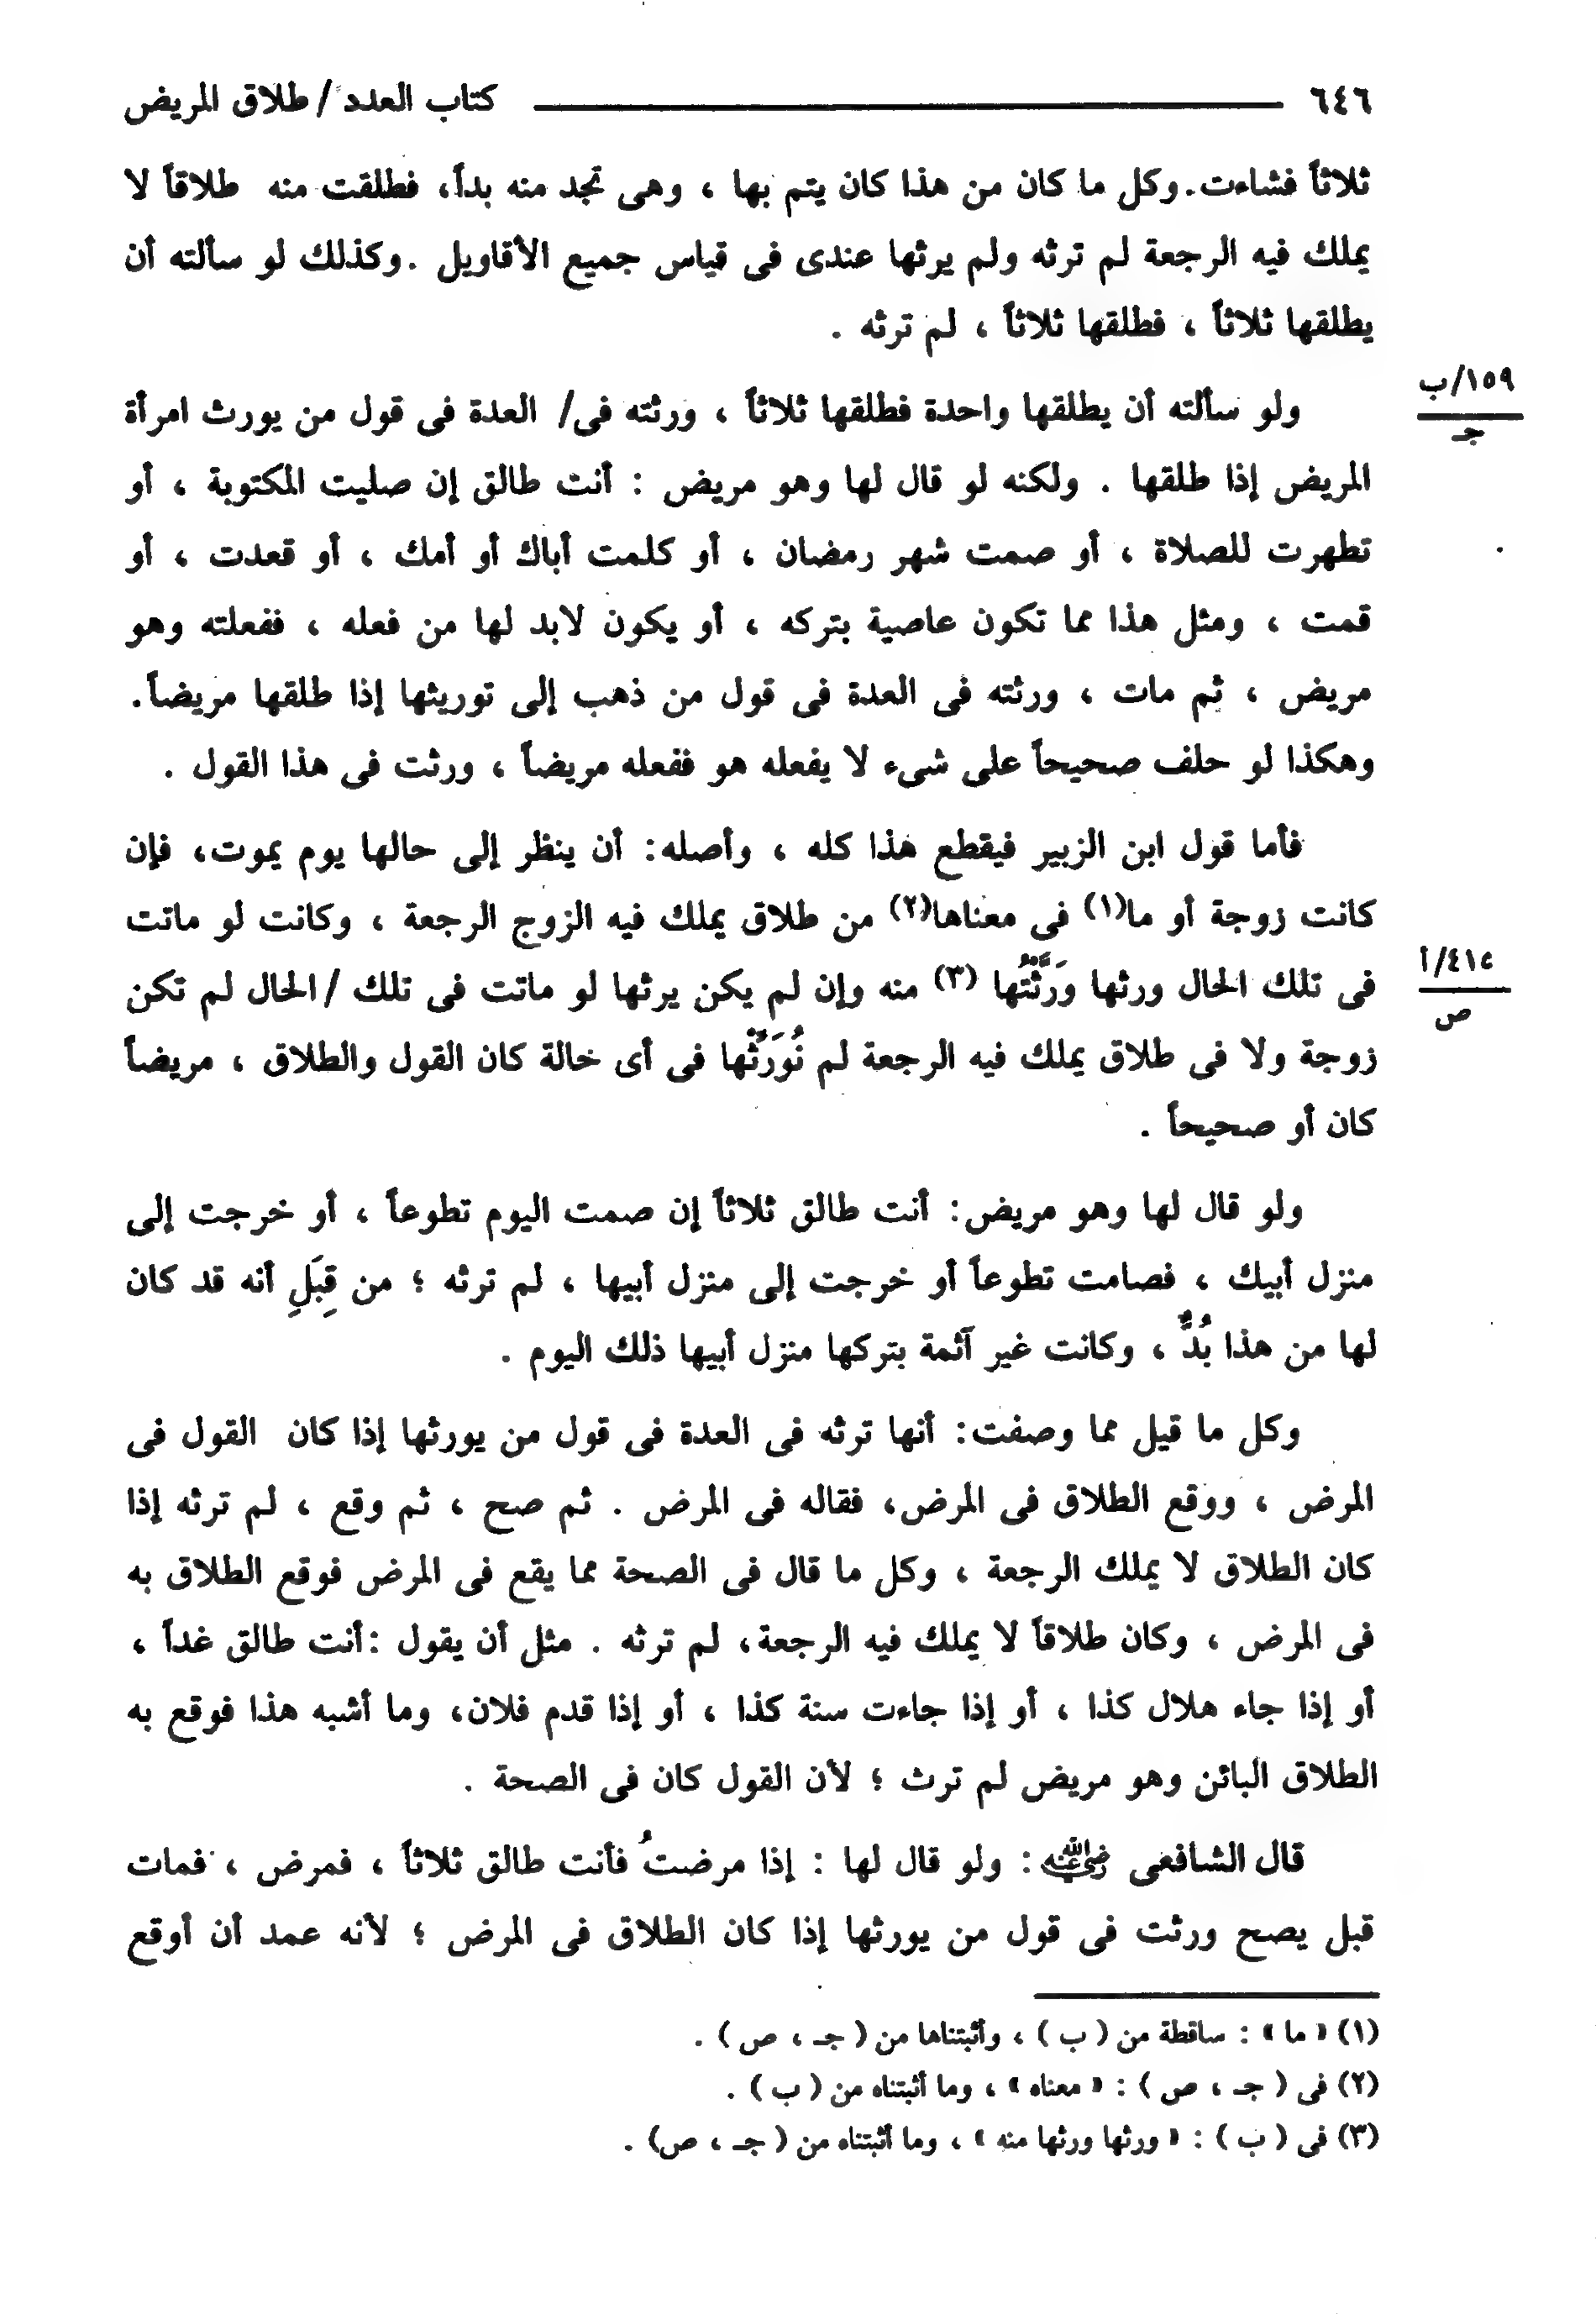 ٦٤٦ كتاب العدد / طلاق المريض
ثلاثاً فشاءت. وكل ما كان من هذا كان يتم بها ، وهى تجد منه بداً، فطلقت منه طلاقاً لا
يملك فيه الرجعة لم ترثه ولم يرثها عندى فى قياس جميع الأقاويل . وكذلك لو سألته أن
يطلقها ثلاثاً ، فطلقها ثلاثاً ، لم ترثه .
ولو سألته أن يطلقها واحدة فطلقها ثلاثاً ، ورثته فى/ العدة فى قول من يورث امرأة
١٥٩/ب
جـ
المريض إذا طلقها . ولكنه لو قال لها وهو مريض : أنت طالق إن صليت المكتوبة ، أو
تطهرت للصلاة ، أو صمت شهر رمضان ، أو كلمت أباك أو أمك ، أو قعدت ، أو
قمت ، ومثل هذا مما تكون عاصية بتركه ، أو يكون لابد لها من فعله ، ففعلته وهو
مريض ، ثم مات ، ورثته فى العدة فى قول من ذهب إلى توريثها إذا طلقها مريضاً.
وهكذا لو حلف صحيحاً على شىء لا يفعله هو ففعله مريضاً ، ورثت فى هذا القول .
فأما قول ابن الزبير فيقطع هذا كله ، وأصله: أن ينظر إلى حالها يوم يموت، فإن
كانت زوجة أو ما(١) فى معناها(٢) من طلاق يملك فيه الزوج الرجعة ، وكانت لو ماتت
فى تلك الحال ورثها وَرَّثْتُها (٣) منه وإن لم يكن يرثها لو ماتت فى تلك /الحال لم تكن
٤١٤/أ
ص
زوجة ولا فى طلاق يملك فيه الرجعة لم نُوَرِّثْها فى أى حالة كان القول والطلاق ، مريضاً
كان أو صحيحاً .
ولو قال لها وهو مريض: أنت طالق ثلاثاً إن صمت اليوم تطوعاً ، أو خرجت إلى
منزل أبيك ، فصامت تطوعاً أو خرجت إلى منزل أبيها ، لم ترثه ؛ من قِبَلِ أنه قد كان
لها من هذا بُدٌّ ، وكانت غير آثمة بتركها منزل أبيها ذلك اليوم .
وكل ما قيل مما وصفت: أنها ترثه فى العدة فى قول من يورثها إذا كان القول فى
المرض ، ووقع الطلاق فى المرض، فقاله فى المرض . ثم صح ، ثم وقع ، لم ترثه إذا
كان الطلاق لا يملك الرجعة ، وكل ما قال فى الصحة مما يقع فى المرض فوقع الطلاق به
فى المرض ، وكان طلاقاً لا يملك فيه الرجعة، لم ترثه . مثل أن يقول :أنت طالق غداً ،
أو إذا جاء هلال كذا ، أو إذا جاءت سنة كذا ، أو إذا قدم فلان، وما أشبه هذا فوقع به
الطلاق البائن وهو مريض لم ترث ؛ لأن القول كان فى الصحة .
قال الشافعى رضي الله عنه : ولو قال لها : إذا مرضتُ فأنت طالق ثلاثاً ، فمرض ، فمات
قبل يصح ورثت فى قول من يورثها إذا كان الطلاق فى المرض ؛ لأنه عمد أن أوقع
(١) « ما » : ساقطة من ( ب ) ، وأثبتناها من ( جـ ، ص ) .
(٢) فى ( جـ ، ص ) : « معناه » ، وما أثبتناه من ( ب ) .
(٣) فى ( ب ) : « ورثها ورثها منه » ، وما أثبتناه من ( جـ ، ص) .